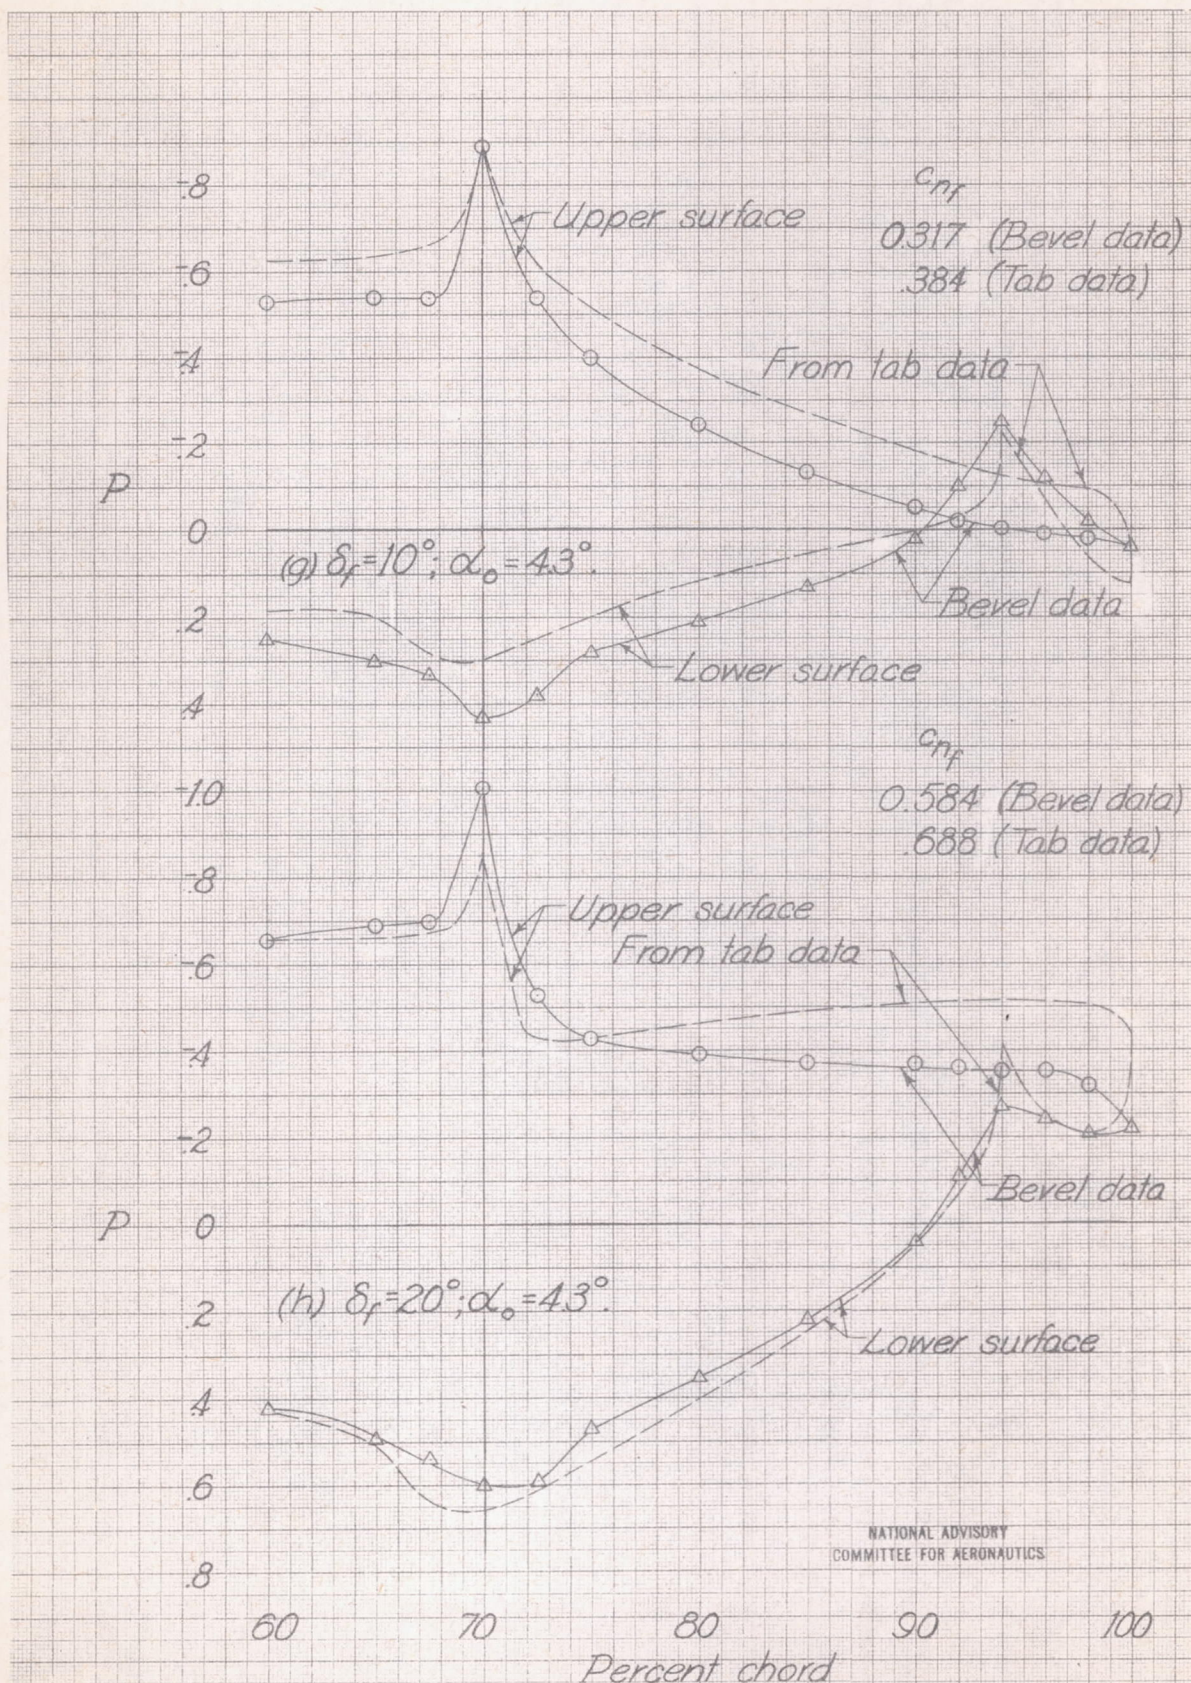 -.8
c_nf
Upper surface
0.317 (Bevel data)
-.6
.384 (Tab data)
-.4
From tab data
-.2
P
0
(g) δ_f=10°; α_o=4.3°.
.2
Bevel data
Lower surface
.4
c_nf
-1.0
0.584 (Bevel data)
.688 (Tab data)
-.8
Upper surface
From tab data
-.6
-.4
-.2
Bevel data
P 0
(h) δ_f=20°; α_o=4.3°.
.2
Lower surface
.4
.6
NATIONAL ADVISORY
COMMITTEE FOR AERONAUTICS
.8
60 70 80 90 100
Percent chord